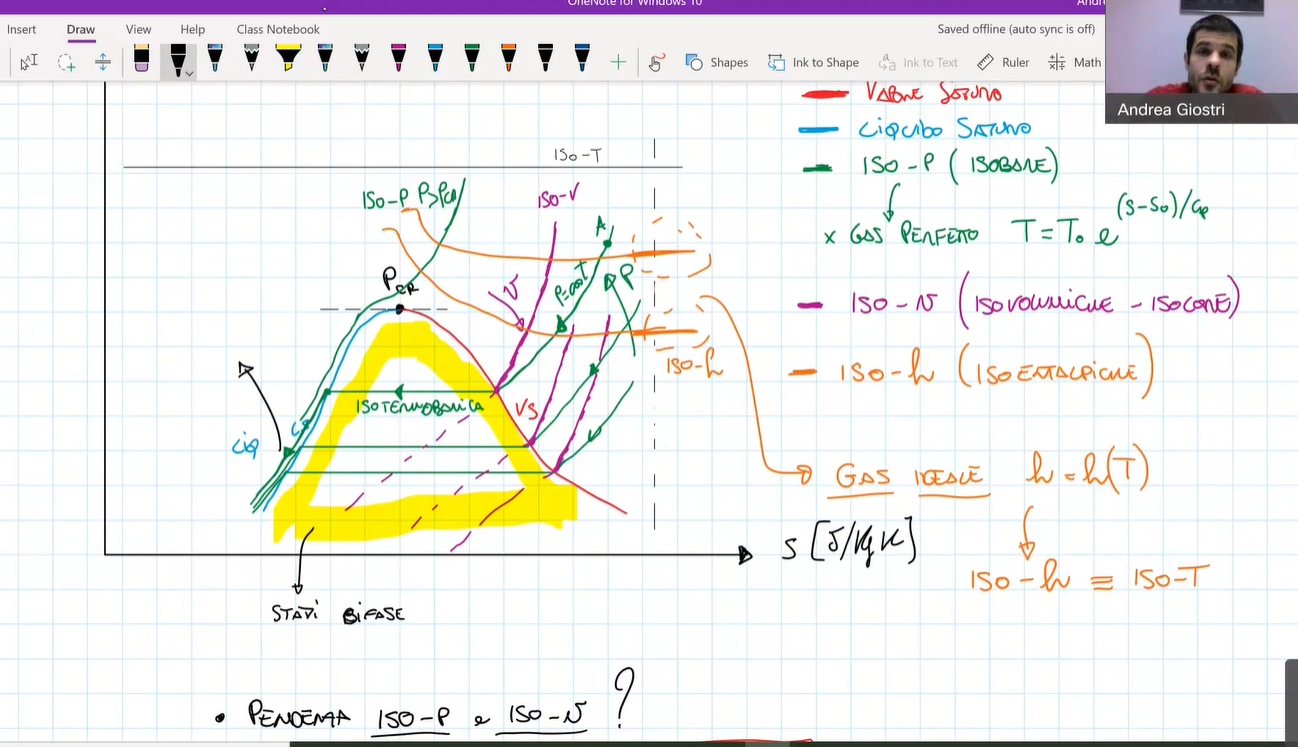 OneNote for Windows 10
Insert
Draw
View
Help
Class Notebook
Saved offline (auto sync is off)
Shapes
Ink to Shape
Ink to Text
Ruler
Math
Andrea Giostri
VAPORE SATURO
LIQUIDO SATURO
ISO-P (ISOBARE)
x GAS PERFETTO T = T₀ e^(S-S₀)/Cp
ISO-v (ISOVOLUMICHE - ISOCORE)
ISO-h (ISOENTALPICHE)
GAS IDEALE h = h(T)
ISO-h ≡ ISO-T
ISO-T
ISO-P P>Pcr
ISO-v
A
P
PCR
v
P=cost
ISO-h
ISOTERMOBARICA
VS
LS
LIQ
S [J/kg K]
STATI BIFASE
• PENDENZA ISO-P e ISO-v ?